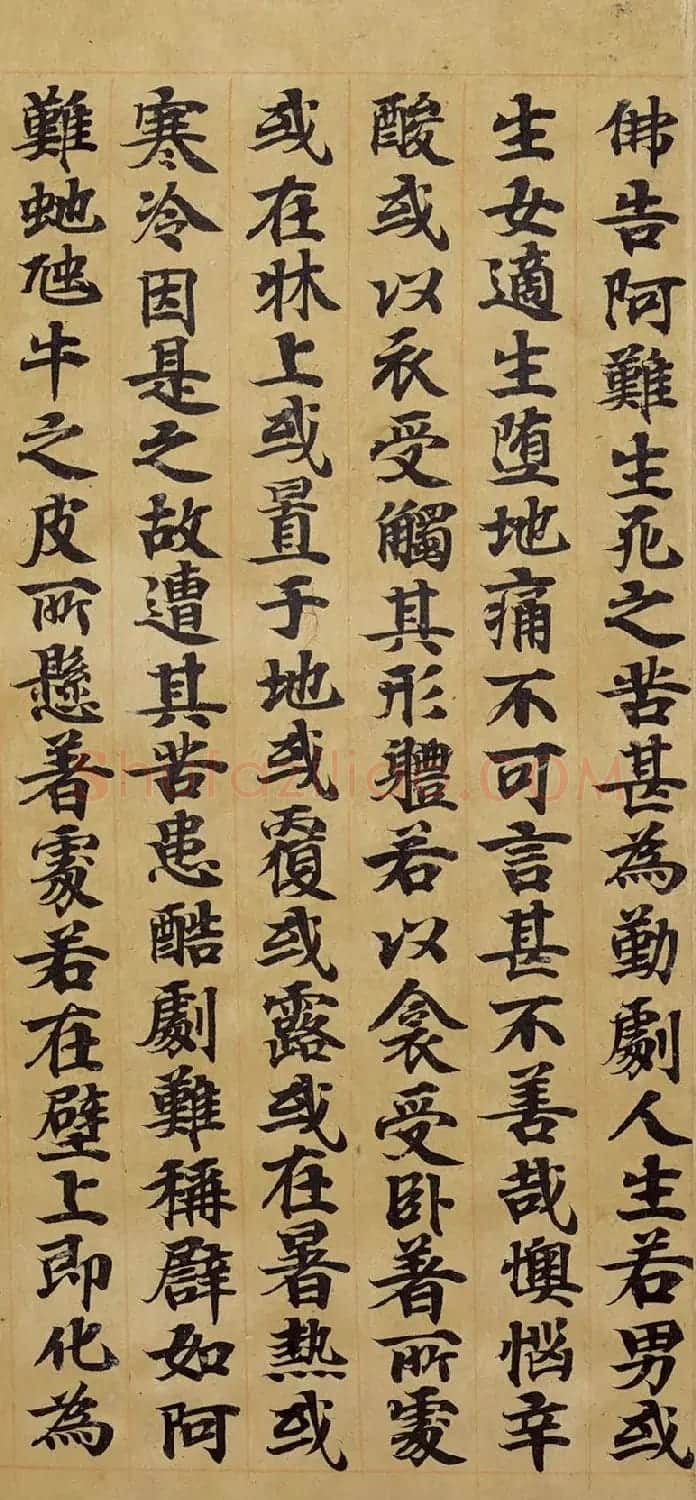 佛告阿難生死之苦甚為勤劇人生若男或
生女適生堕地痛不可言甚不善哉懊惱辛
酸或以衣受觸其形體若以衾受卧著所處
或在牀上或置于地或覆或露或在暑熱或
寒冷因是之故遭其苦患酷劇難稱辟如阿
難虵虺牛之皮所懸著處若在壁上即化為
Shufaziliao.COM